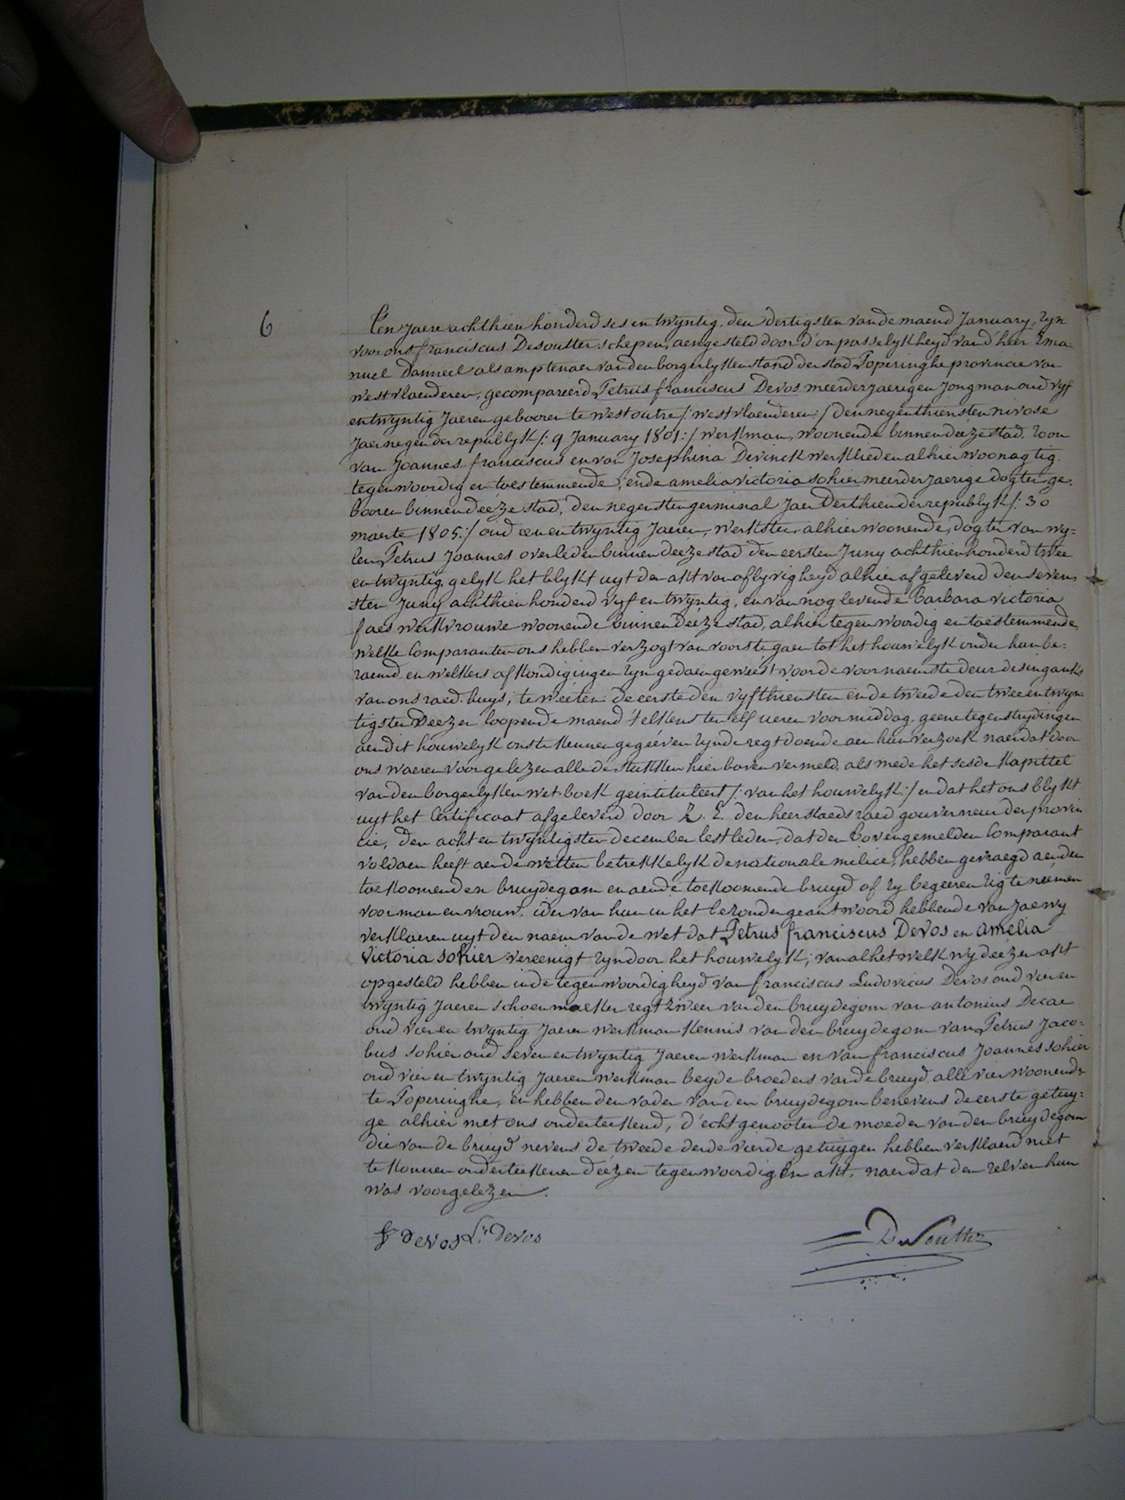 6
Een Jaere achthien honderd ses en twyntig, den dertigsten van de maend January, zyn
voor ons franciscus Desoutter schepen, aengesteld door d'onpasselykheyd van d'heer Ema-
nuel Danneel als amptenaer van den borgerlyken stand der stad Poperinghe provincie van
westvlaenderen, gecompareerd Petrus franciscus Devos meerderjaerigen Jongman oud vyf
en twyntig Jaeren geboren te westoutre /westvlaenderen:/ den negenthiensten nivose
Jaer negen der republyk /: 9 January 1801:/ werkman, woonende binnen deeze stad, zoon
van Joannes franciscus en van Josephina Devinck werklieden alhier woonagtig
tegenwoordig en toestemmende; ende amelia victoria sohier meerderjaerige dogter ge-
booren binnen deeze stad, den negensten germinal Jaer Derthien der republyk /: 30
maerte 1805:/ oud een en twyntig Jaeren, werkster, alhier woonende, dogter van wy-
len Petrus Joannes overleden binnen deeze stad den eersten Juny achthien honderd twee
en twyntig, gelyk het blykt uyt den akt van aflyvigheyd alhier afgeleverd den seven-
sten Juny achthien honderd vyf en twyntig, en van nog levende Barbara victoria
faes werkvrouwe woonende binnen deeze stad, alhier tegenwoordig en toestemmende,
welke Comparanten ons hebben verzogt van voorts te gaen tot het houwelyk onder hun be-
raemd en welkers afkondigingen zyn gedaen geweest voor de voornaemste deur des ingank
van ons raed-huys, te weeten: de eerste den vyfthiensten en de tweede den twee en twyn-
tigsten Deezer loopende maend t'elkens ten elf ueren voormiddag, geene tegenstrydingen
aen dit houwelyk ons te kennen gegeéven zynde regt doende aen hun verzoek naer dat door
ons waeren voorgelezen alle de stukken hier boven vermeld, als mede het sesde Kapittel
van den borgerlyken wet-boek geintituleert /: van het houwelyk:/ en dat het ons blykt
uyt het Certificaat afgeleverd door Z. E. den heer staedsraed gouverneur der provin-
cie, den acht en twyntigsten december lestleden, dat den Bovengemelden Comparant
voldaen heeft aen de wetten betrekkelyk de nationale melice, hebben gevraegd aen den
toekoomenden bruydegom en aen de toekoomende bruyd of zy begeeren zig te neémen
voor man en vrouw, ider van hun in het bezonder geantwoord hebbende van Jae wy
verklaeren uyt den naem van de wet dat Petrus franciscus Devos en amelia
victoria sohier vereenigt zyn door het houwelyk; van al het welk wy deezen akt
opgesteld hebben in de tegenwoordigheyd van franciscus Ludovicus Devos oud vier en
twyntig Jaeren schoenmaeker regtzweer van den bruydegom van antonius Decae
oud vier en twyntig Jaeren werkman kennis van den bruydegom van Petrus Jaco-
bus sohier oud seven en twyntig Jaeren werkman en van franciscus Joannes sohier
oud vier en twyntig Jaeren werkman beyde broeders van de bruyd alle vier woonende
te Poperinghe, en hebben den vader van den bruydegom benevens de eerste getuy-
ge alhier met ons onderteekend, d'echtgenooten de moeder van den bruydegom
die van de bruyd nevens de tweede derde vierde getuygen hebben verklaerd niet
te konnen onderteekenen deézen tegenwoordigen akt, naer dat den zelven hun
was voorgelezen.
fr devos Lc devos
DeSoutter